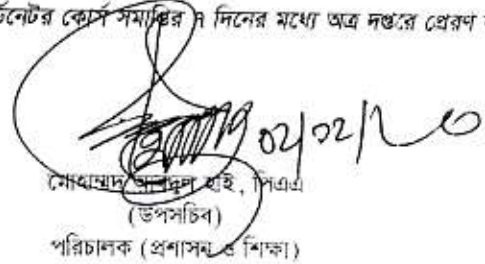 র্ডিনেটর কোর্স সমাপ্তির ৭ দিনের মধ্যে অত্র দপ্তরে প্রেরণ
০২/১২/২০
মোহাম্মদ আবদুল হাই, সিএএ
(উপসচিব)
পরিচালক (প্রশাসন ও শিক্ষা)